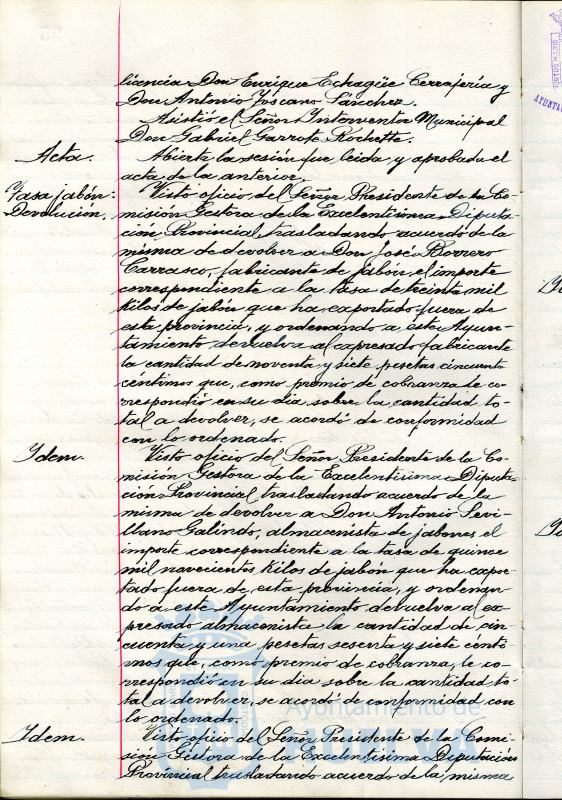 licencia Don Enrique Echagüe Cerrajería y
Don Antonio Toscano Sánchez.
Asistió el Señor Interventor Municipal
Don Gabriel Garrote Rochette.
Acta.
Abierta la sesión fue leida y aprobada el
acta de la anterior.
Tasa jabón:
Devolución.
Visto oficio del Señor Presidente de la Co-
misión Gestora de la Excelentisima Diputa-
ción Provincial trasladando acuerdo de la
misma de devolver a Don José Borrero
Carrasco, fabricante de jabón, el importe
correspondiente a la tasa de treinta mil
kilos de jabón que ha exportado fuera de
esta provincia, y ordenando a este Ayun-
tamiento devuelva al expresado fabricante
la cantidad de noventa y siete pesetas cincuenta
centimos que, como premio de cobranza le co-
rrespondió en su dia sobre la cantidad to-
tal a devolver, se acordó de conformidad
con lo ordenado.
Idem.
Visto oficio del Señor Presidente de la Co-
misión Gestora de la Excelentisima Diputa-
ción Provincial trasladando acuerdo de la
misma de devolver a Don Antonio Sevi-
llano Galindo, almacenista de jabones el
importe correspondiente a la tasa de quince
mil novecientos kilos de jabón que ha expor-
tado fuera de esta provincia, y ordenan-
do a este Ayuntamiento devuelva al ex-
presado almacenista la cantidad de cin-
cuenta y una pesetas sesenta y siete cénti-
mos que, como premio de cobranza, le co-
rrespondió en su dia sobre la cantidad to-
tal a devolver, se acordó de conformidad con
lo ordenado.
Idem.
Visto oficio del Señor Presidente de la Comi-
sión Gestora de la Excelentisima Diputación
Provincial trasladando acuerdo de la misma
Ayuntamiento de
HUELVA